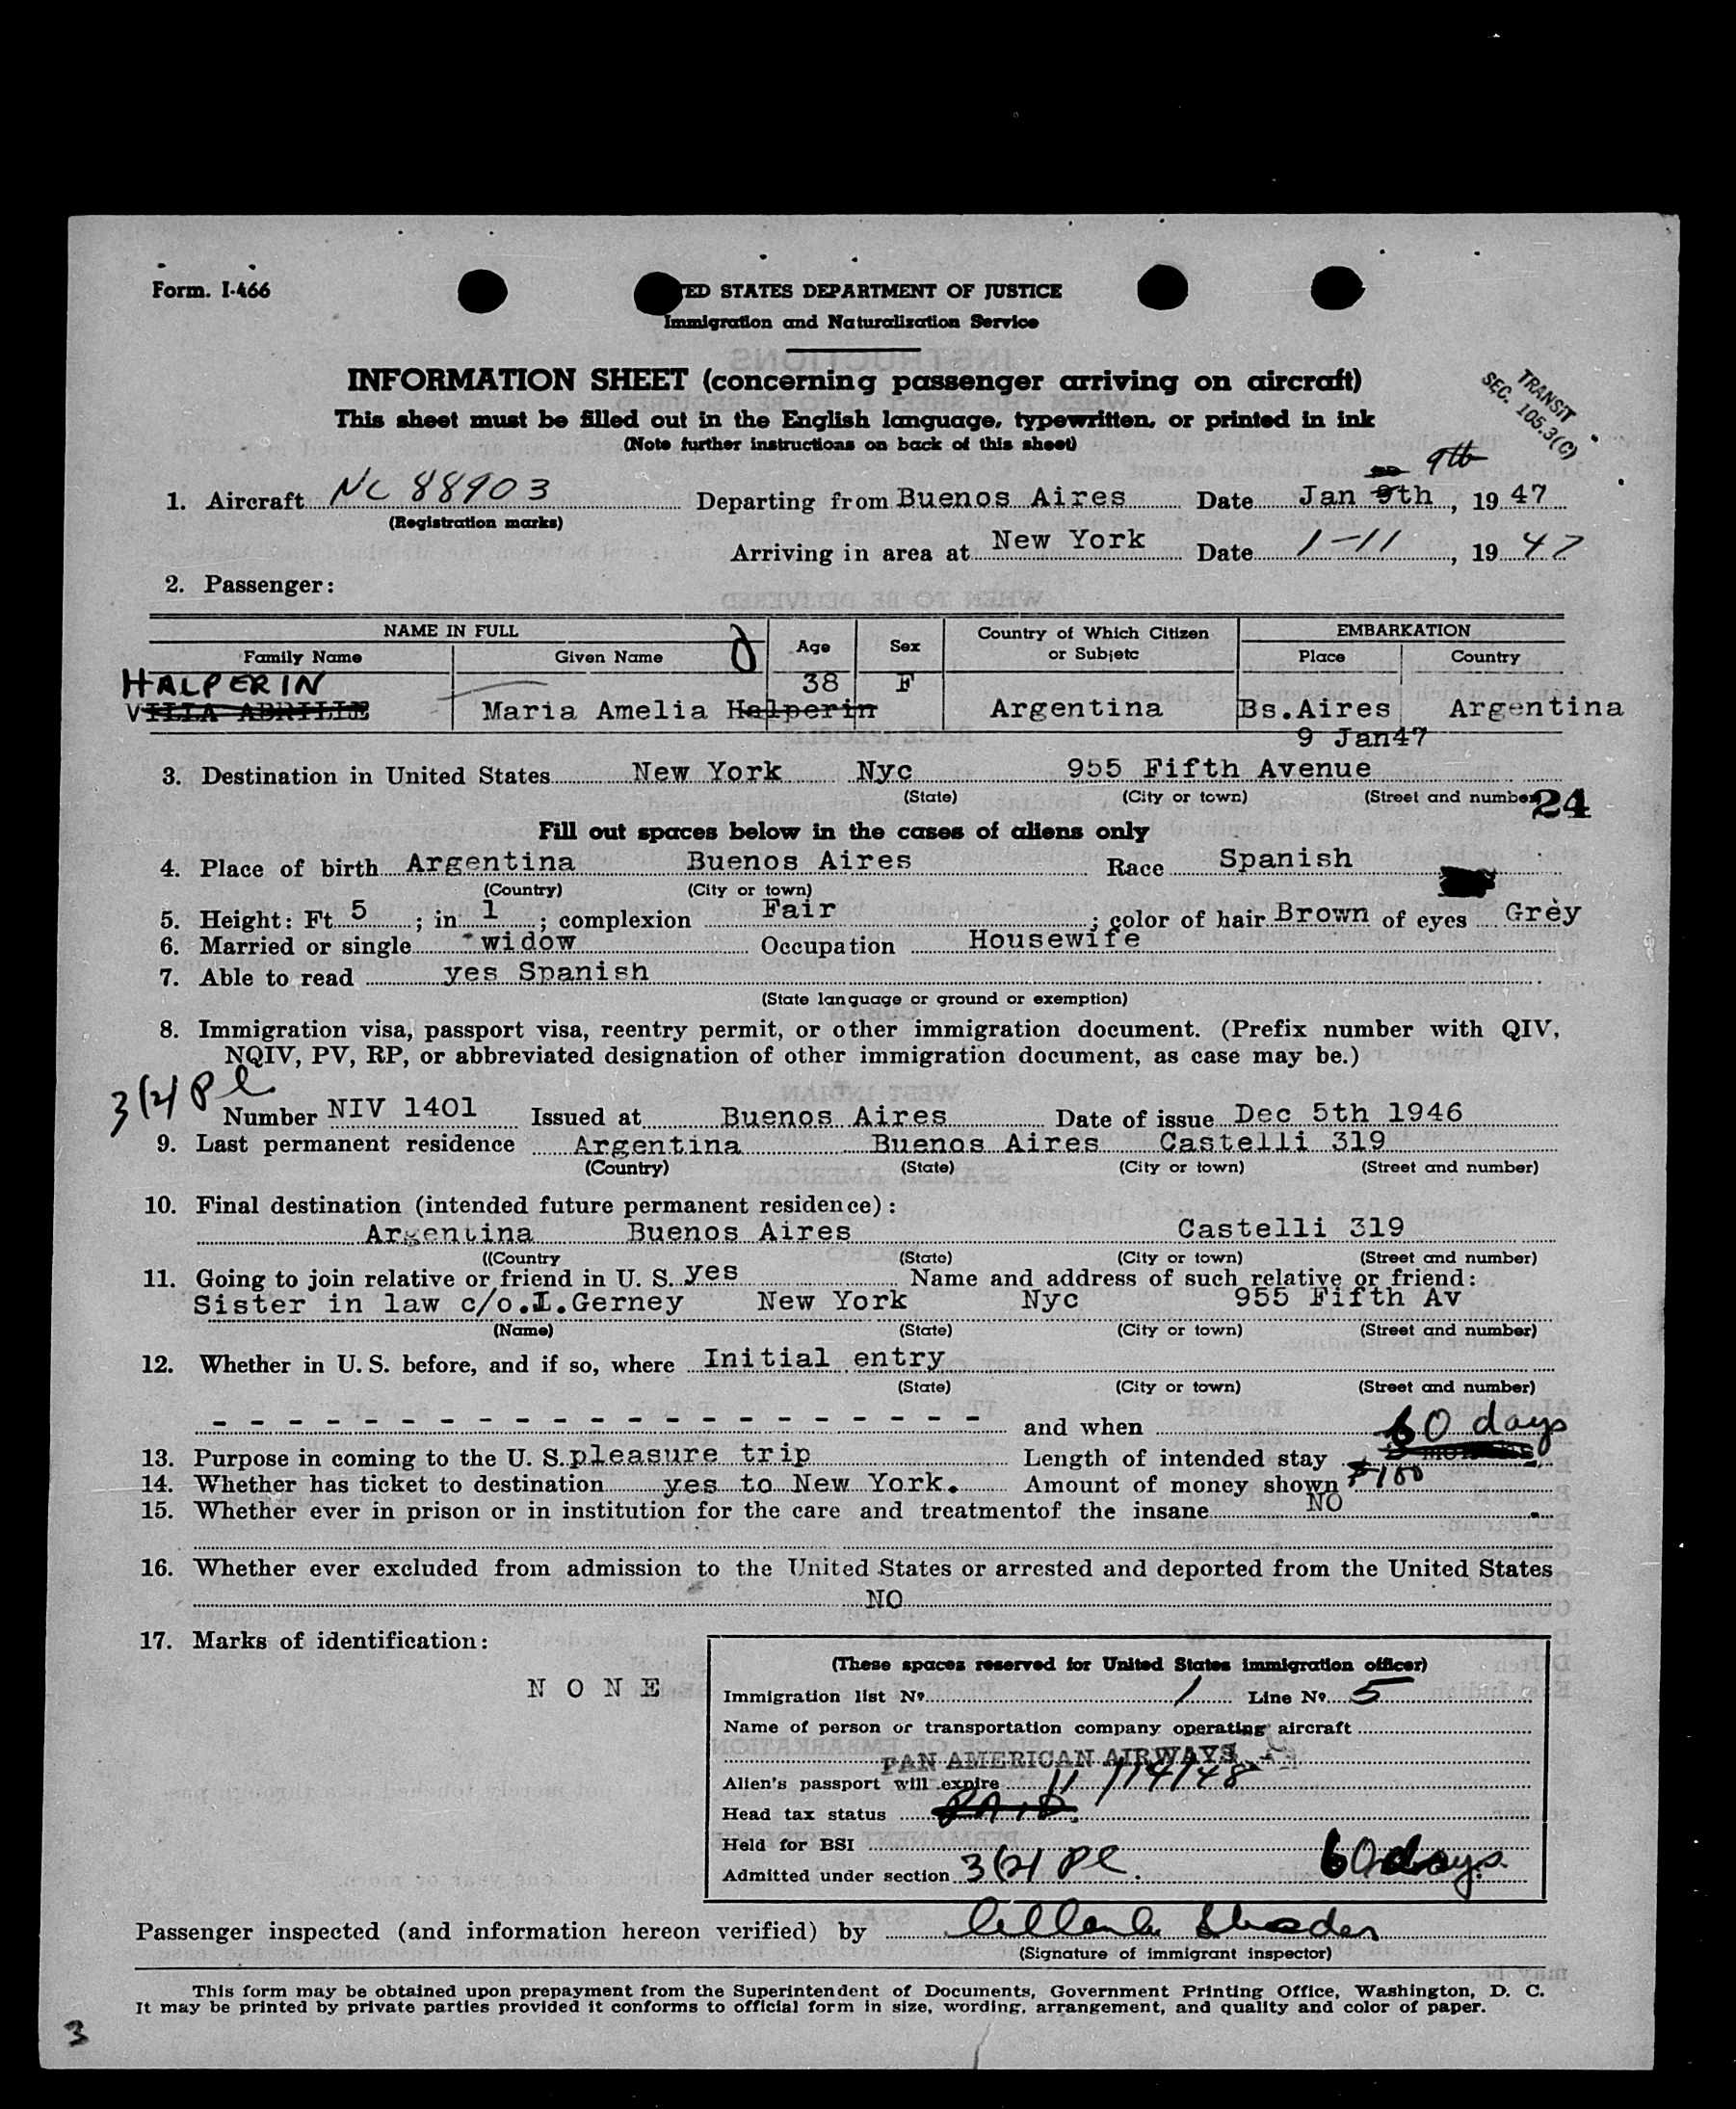 Form. I-466
ED STATES DEPARTMENT OF JUSTICE
Immigration and Naturalization Service
INFORMATION SHEET (concerning passenger arriving on aircraft)
TRANSIT
SEC. 105.3(C)
This sheet must be filled out in the English language, typewritten, or printed in ink
(Note further instructions on back of this sheet)
9th
1. Aircraft NC 88903 Departing from Buenos Aires Date Jan 9th, 19 47
(Registration marks)
Arriving in area at New York Date 1-11, 19 47
2. Passenger:
NAME IN FULL Age Sex Country of Which Citizen or Subjetc EMBARKATION
Family Name Given Name Place Country
HALPERIN 38 F
VILLA ABRILLE Maria Amelia Halperin Argentina Bs.Aires Argentina
9 Jan47
3. Destination in United States New York Nyc 955 Fifth Avenue
(State) (City or town) (Street and number)
24
Fill out spaces below in the cases of aliens only
4. Place of birth Argentina Buenos Aires Race Spanish
(Country) (City or town)
5. Height: Ft 5 ; in 1 ; complexion Fair ; color of hair Brown of eyes Grey
6. Married or single widow Occupation Housewife
7. Able to read yes Spanish
(State language or ground or exemption)
8. Immigration visa, passport visa, reentry permit, or other immigration document. (Prefix number with QIV,
NQIV, PV, RP, or abbreviated designation of other immigration document, as case may be.)
3(2) Pl
Number NIV 1401 Issued at Buenos Aires Date of issue Dec 5th 1946
9. Last permanent residence Argentina Buenos Aires Castelli 319
(Country) (State) (City or town) (Street and number)
10. Final destination (intended future permanent residence):
Argentina Buenos Aires Castelli 319
((Country (State) (City or town) (Street and number)
11. Going to join relative or friend in U. S. yes Name and address of such relative or friend:
Sister in law c/o.I.Gerney New York Nyc 955 Fifth Av
(Name) (State) (City or town) (Street and number)
12. Whether in U. S. before, and if so, where Initial entry
(State) (City or town) (Street and number)
- - - - - - - - - - - - - - - - - - - - - and when
60 days
13. Purpose in coming to the U. S. pleasure trip Length of intended stay
14. Whether has ticket to destination yes to New York. Amount of money shown $100
15. Whether ever in prison or in institution for the care and treatmentof the insane NO
16. Whether ever excluded from admission to the United States or arrested and deported from the United States
NO
17. Marks of identification:
N O N E
(These spaces reserved for United States immigration officer)
Immigration list Nº 1 Line Nº 5
Name of person or transportation company operating aircraft
PAN AMERICAN AIRWAYS
Alien's passport will expire 11/14/48
Head tax status PAID
Held for BSI
Admitted under section 3(2) Pl. 60 days.
Passenger inspected (and information hereon verified) by
(Signature of immigrant inspector)
This form may be obtained upon prepayment from the Superintendent of Documents, Government Printing Office, Washington, D. C.
It may be printed by private parties provided it conforms to official form in size, wording, arrangement, and quality and color of paper.
3